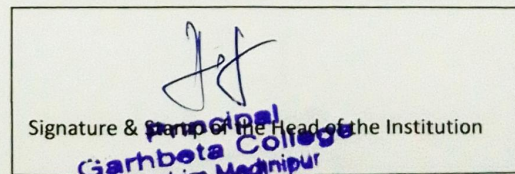 Signature & Stamp of the Head of the Institution
Principal
Garhbeta College
Medinipur